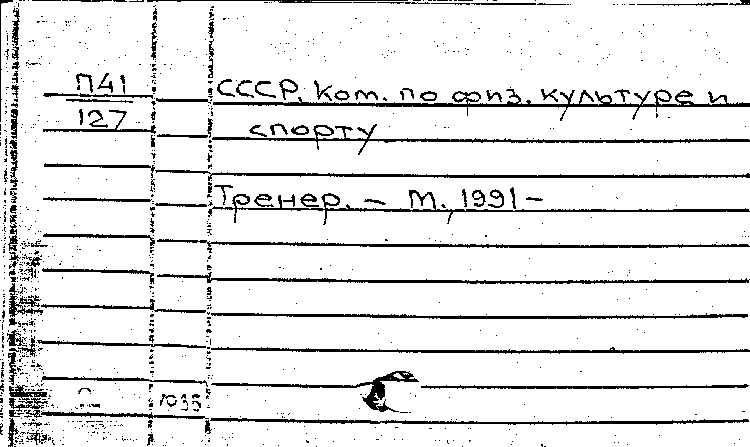 П41
127
СССР. Ком. по физ. культуре и
спорту
Тренер. – М., 1991 –
1035